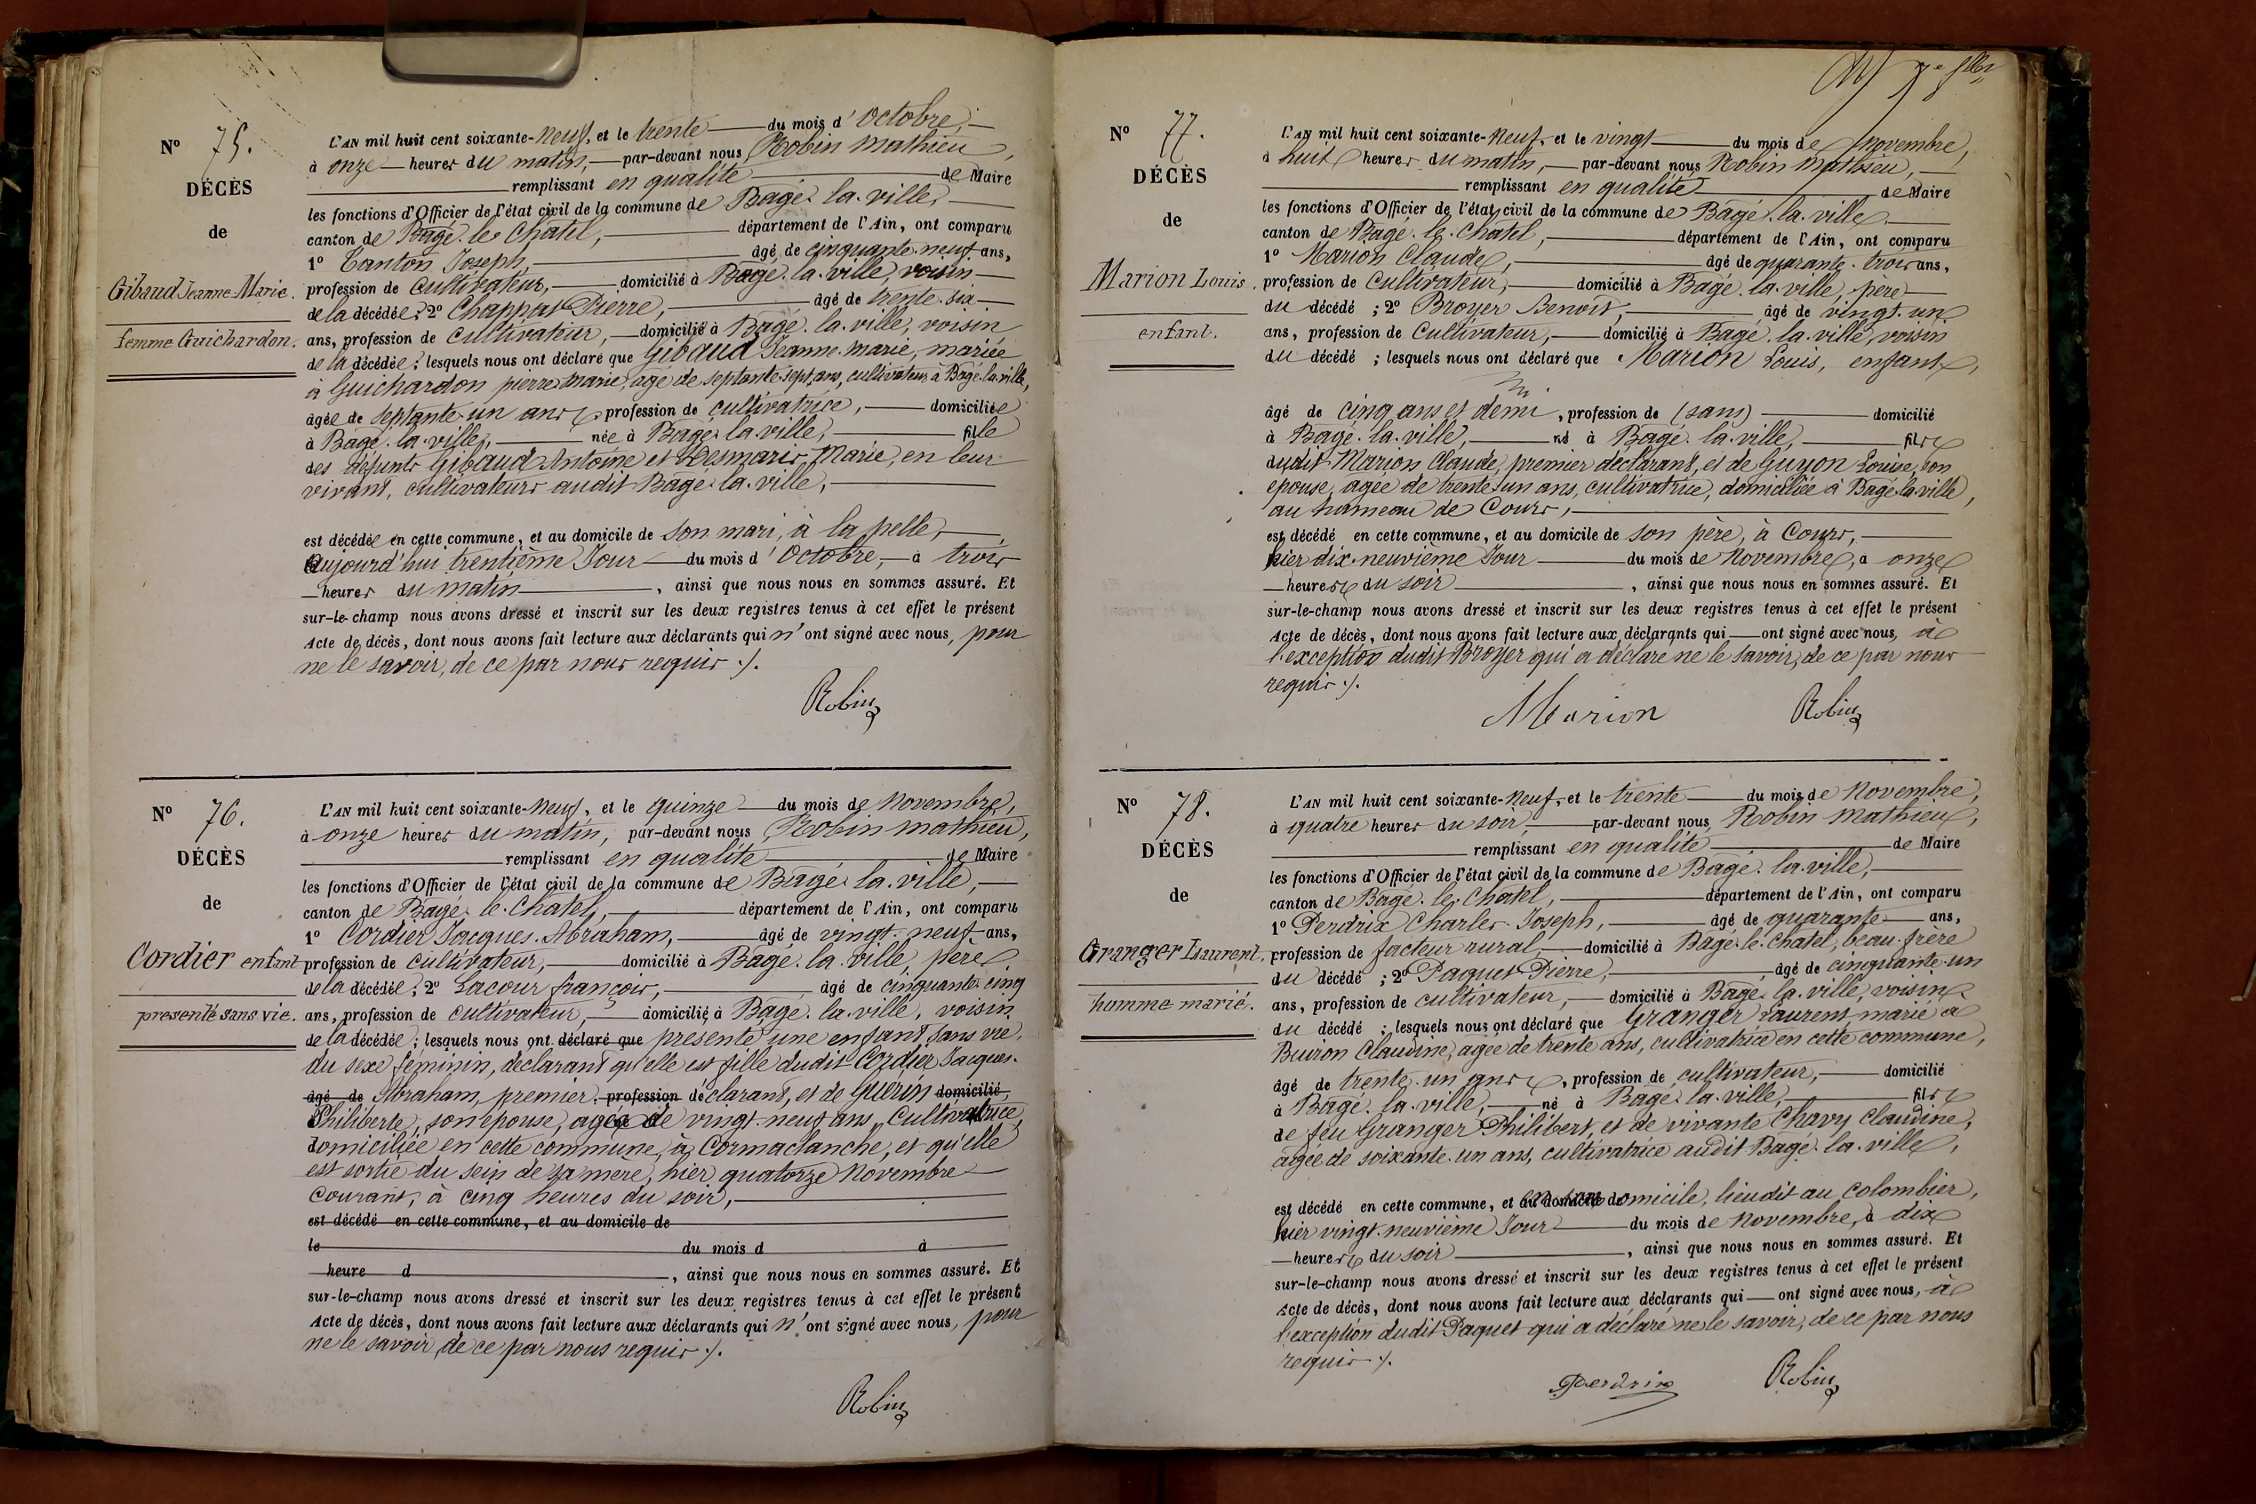 N° 75.
DÉCÈS
de
Gibaud Jeanne-Marie.
femme Guichardon.
L'AN mil huit cent soixante-neuf, et le trente du mois d'Octobre,
à onze heures du matin, par-devant nous Robin Mathieu,
remplissant en qualité de Maire
les fonctions d'Officier de l'état civil de la commune de Bagé-la-ville,
canton de Bagé-le-Chatel, département de l'Ain, ont comparu
1° Canton Joseph, âgé de cinquante-neuf ans,
profession de cultivateur, domicilié à Bagé-la-ville, voisin
de la décédée; 2° Chappat Pierre, âgé de trente-six
ans, profession de cultivateur, domicilié à Bagé-la-ville, voisin
de la décédée; lesquels nous ont déclaré que Gibaud Jeanne-Marie, mariée
à Guichardon pierre Marie, âgé de septante-sept ans, cultivateur à Bagé-la-ville,
âgée de septante-un ans, profession de cultivatrice, domiciliée
à Bagé-la-ville, née à Bagé-la-ville, fille
des défunts Gibaud Antoine et Desmaris Marie, en leur
vivant, cultivateurs audit Bagé-la-ville,
est décédée en cette commune, et au domicile de son mari, à la pelle,
aujourd'hui trentième Jour du mois d'Octobre, à trois
heures du matin, ainsi que nous nous en sommes assuré. Et
sur-le-champ nous avons dressé et inscrit sur les deux registres tenus à cet effet le présent
Acte de décès, dont nous avons fait lecture aux déclarants qui n'ont signé avec nous, pour
ne le savoir, de ce par nous requis ./.
Robin
N° 76.
DÉCÈS
de
Cordier enfant
presenté sans vie.
L'AN mil huit cent soixante-neuf, et le quinze du mois de Novembre,
à onze heures du matin, par-devant nous Robin Mathieu,
remplissant en qualité de Maire
les fonctions d'Officier de l'état civil de la commune de Bagé-la-ville,
canton de Bagé-le-Chatel, département de l'Ain, ont comparu
1° Cordier Jacques-Abraham, âgé de vingt-neuf ans,
profession de cultivateur, domicilié à Bagé-la-ville, père
de la décédée; 2° Lacour françois, âgé de cinquante-cinq
ans, profession de cultivateur, domicilié à Bagé-la-ville, voisin
de la décédée; lesquels nous ont déclaré que presenté une enfant sans vie,
du sexe féminin, déclarant qu'elle est fille dudit Cordier Jacques-
âgé de Abraham, premier profession déclarant, et de Guérin domicilié
Philiberte, son épouse, agée de vingt-neuf ans, Cultivatrice,
domiciliée en cette commune, à Cormaclanche, et qu'elle
est sortie du sein de sa mère, hier quatorze Novembre
courant, à cinq heures du soir,
est décédé en cette commune, et au domicile de
le du mois d à
heure d , ainsi que nous nous en sommes assuré. Et
sur-le-champ nous avons dressé et inscrit sur les deux registres tenus à cet effet le présent
Acte de décès, dont nous avons fait lecture aux déclarants qui n'ont signé avec nous, pour
ne le savoir, de ce par nous requis ./.
Robin
N° 77.
DÉCÈS
de
Marion Louis.
enfant.
L'AN mil huit cent soixante-neuf, et le vingt du mois de Novembre,
à huit heures du matin, par-devant nous Robin Mathieu,
remplissant en qualité de Maire
les fonctions d'Officier de l'état civil de la commune de Bagé-la-ville,
canton de Bagé-le-Chatel, département de l'Ain, ont comparu
1° Marion Claude, âgé de quarante-trois ans,
profession de cultivateur, domicilié à Bagé-la-ville, père
du décédé; 2° Broyer Benoît, âgé de vingt-un
ans, profession de cultivateur, domicilié à Bagé-la-ville, voisin
du décédé; lesquels nous ont déclaré que Marion Louis, enfant,
âgé de cinq ans et demi, profession de (sans) domicilié
à Bagé-la-ville, né à Bagé-la-ville, fils
dudit Marion Claude, premier déclarant, et de Guyon Louise, son
épouse, agée de trente-un ans, cultivatrice, domiciliée à Bagé-la-ville,
au hameau de Cours,
est décédé en cette commune, et au domicile de son père, à Cours,
hier dix-neuvième Jour du mois de Novembre, à onze
heures du soir, ainsi que nous nous en sommes assuré. Et
sur-le-champ nous avons dressé et inscrit sur les deux registres tenus à cet effet le présent
Acte de décès, dont nous avons fait lecture aux déclarants qui ont signé avec nous, à
l'exception dudit Broyer qui a déclaré ne le savoir, de ce par nous
requis ./.
Marion Robin
N° 78.
DÉCÈS
de
Granger Laurent,
homme marié.
L'AN mil huit cent soixante-neuf, et le trente du mois de Novembre,
à quatre heures du soir, par-devant nous Robin Mathieu,
remplissant en qualité de Maire
les fonctions d'Officier de l'état civil de la commune de Bagé-la-ville,
canton de Bagé-le-Chatel, département de l'Ain, ont comparu
1° Perdrix Charles-Joseph, âgé de quarante ans,
profession de facteur rural, domicilié à Bagé-le-Chatel, beau-frère
du décédé; 2° Paquet Pierre, âgé de cinquante-un
ans, profession de cultivateur, domicilié à Bagé-la-ville, voisin
du décédé; lesquels nous ont déclaré que Granger Laurent marié à
Buiron Claudine, agée de trente ans, cultivatrice en cette commune,
âgé de trente-un ans, profession de cultivateur, domicilié
à Bagé-la-ville, né à Bagé-la-ville, fils
de feu Granger Philibert, et de vivante Chavy Claudine,
agée de soixante-un ans, cultivatrice audit Bagé-la-ville,
est décédé en cette commune, et en son domicile, lieu dit au Colombier,
hier vingt-neuvième Jour du mois de Novembre, à dix
heures du soir, ainsi que nous nous en sommes assuré. Et
sur-le-champ nous avons dressé et inscrit sur les deux registres tenus à cet effet le présent
Acte de décès, dont nous avons fait lecture aux déclarants qui ont signé avec nous, à
l'exception dudit Paquet qui a déclaré ne le savoir, de ce par nous
requis ./.
Perdrix Robin